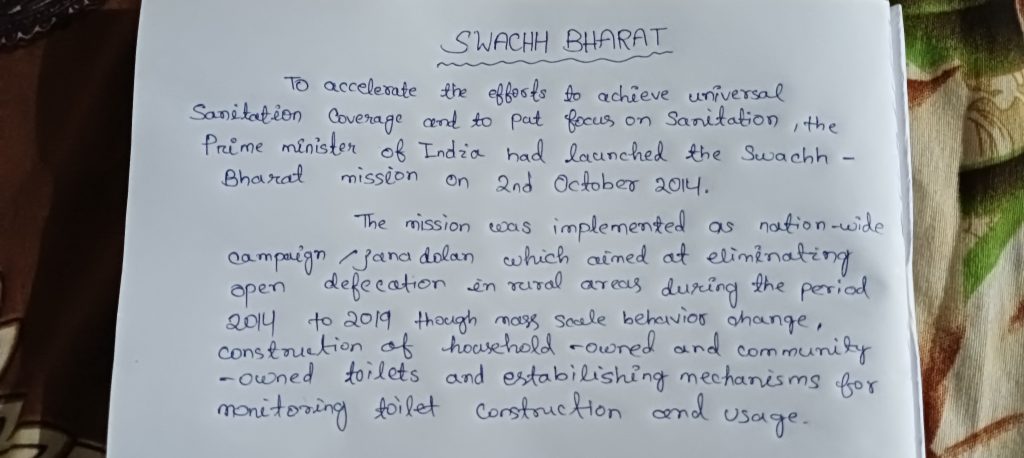 SWACHH BHARAT
To accelerate the efforts to achieve universal
Sanitation Coverage and to put focus on Sanitation, the
Prime minister of India had launched the Swachh -
Bharat mission on 2nd October 2014.
The mission was implemented as nation-wide
campaign / janadolan which aimed at eliminating
open defecation in rural areas during the period
2014 to 2019 though mass scale behavior change,
construction of household -owned and community
-owned toilets and estabilishing mechanisms for
monitoring toilet construction and usage.